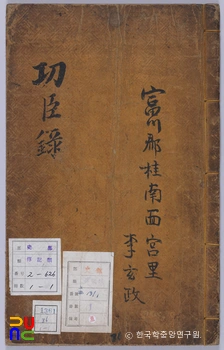 功臣錄
富川郡桂南面宮里
李玄政
2-626
1-1
ⓒ한국학중앙연구원